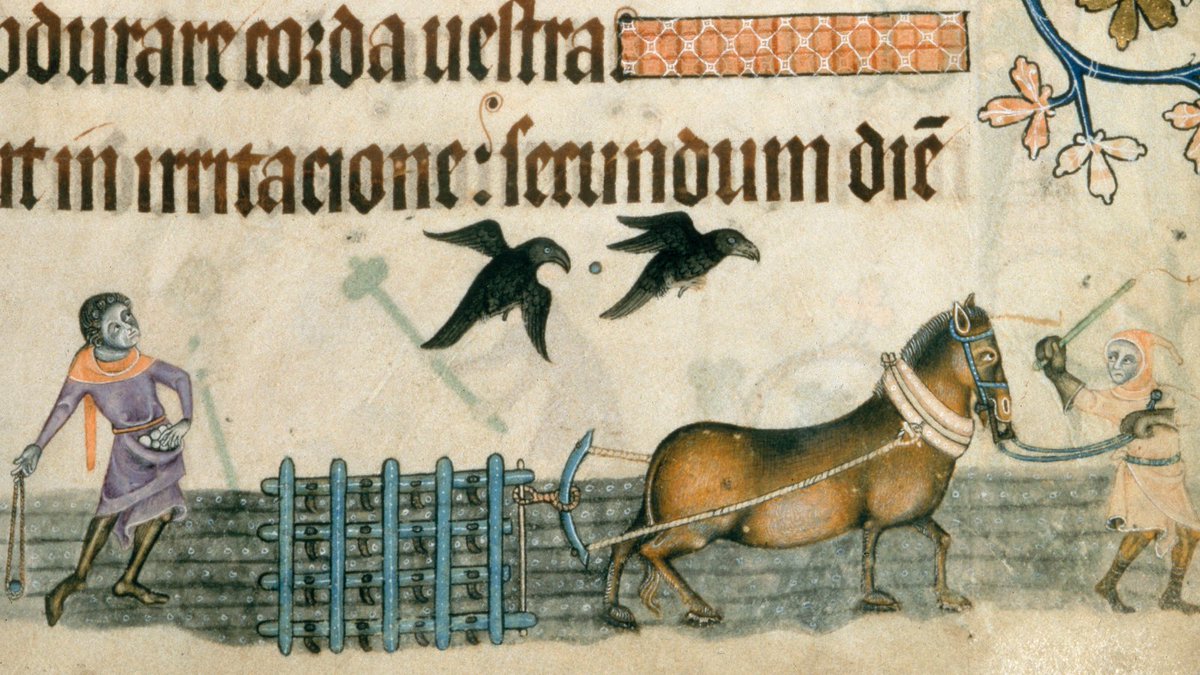 obdurare corda uestra
ut in irritacione: secundum diē